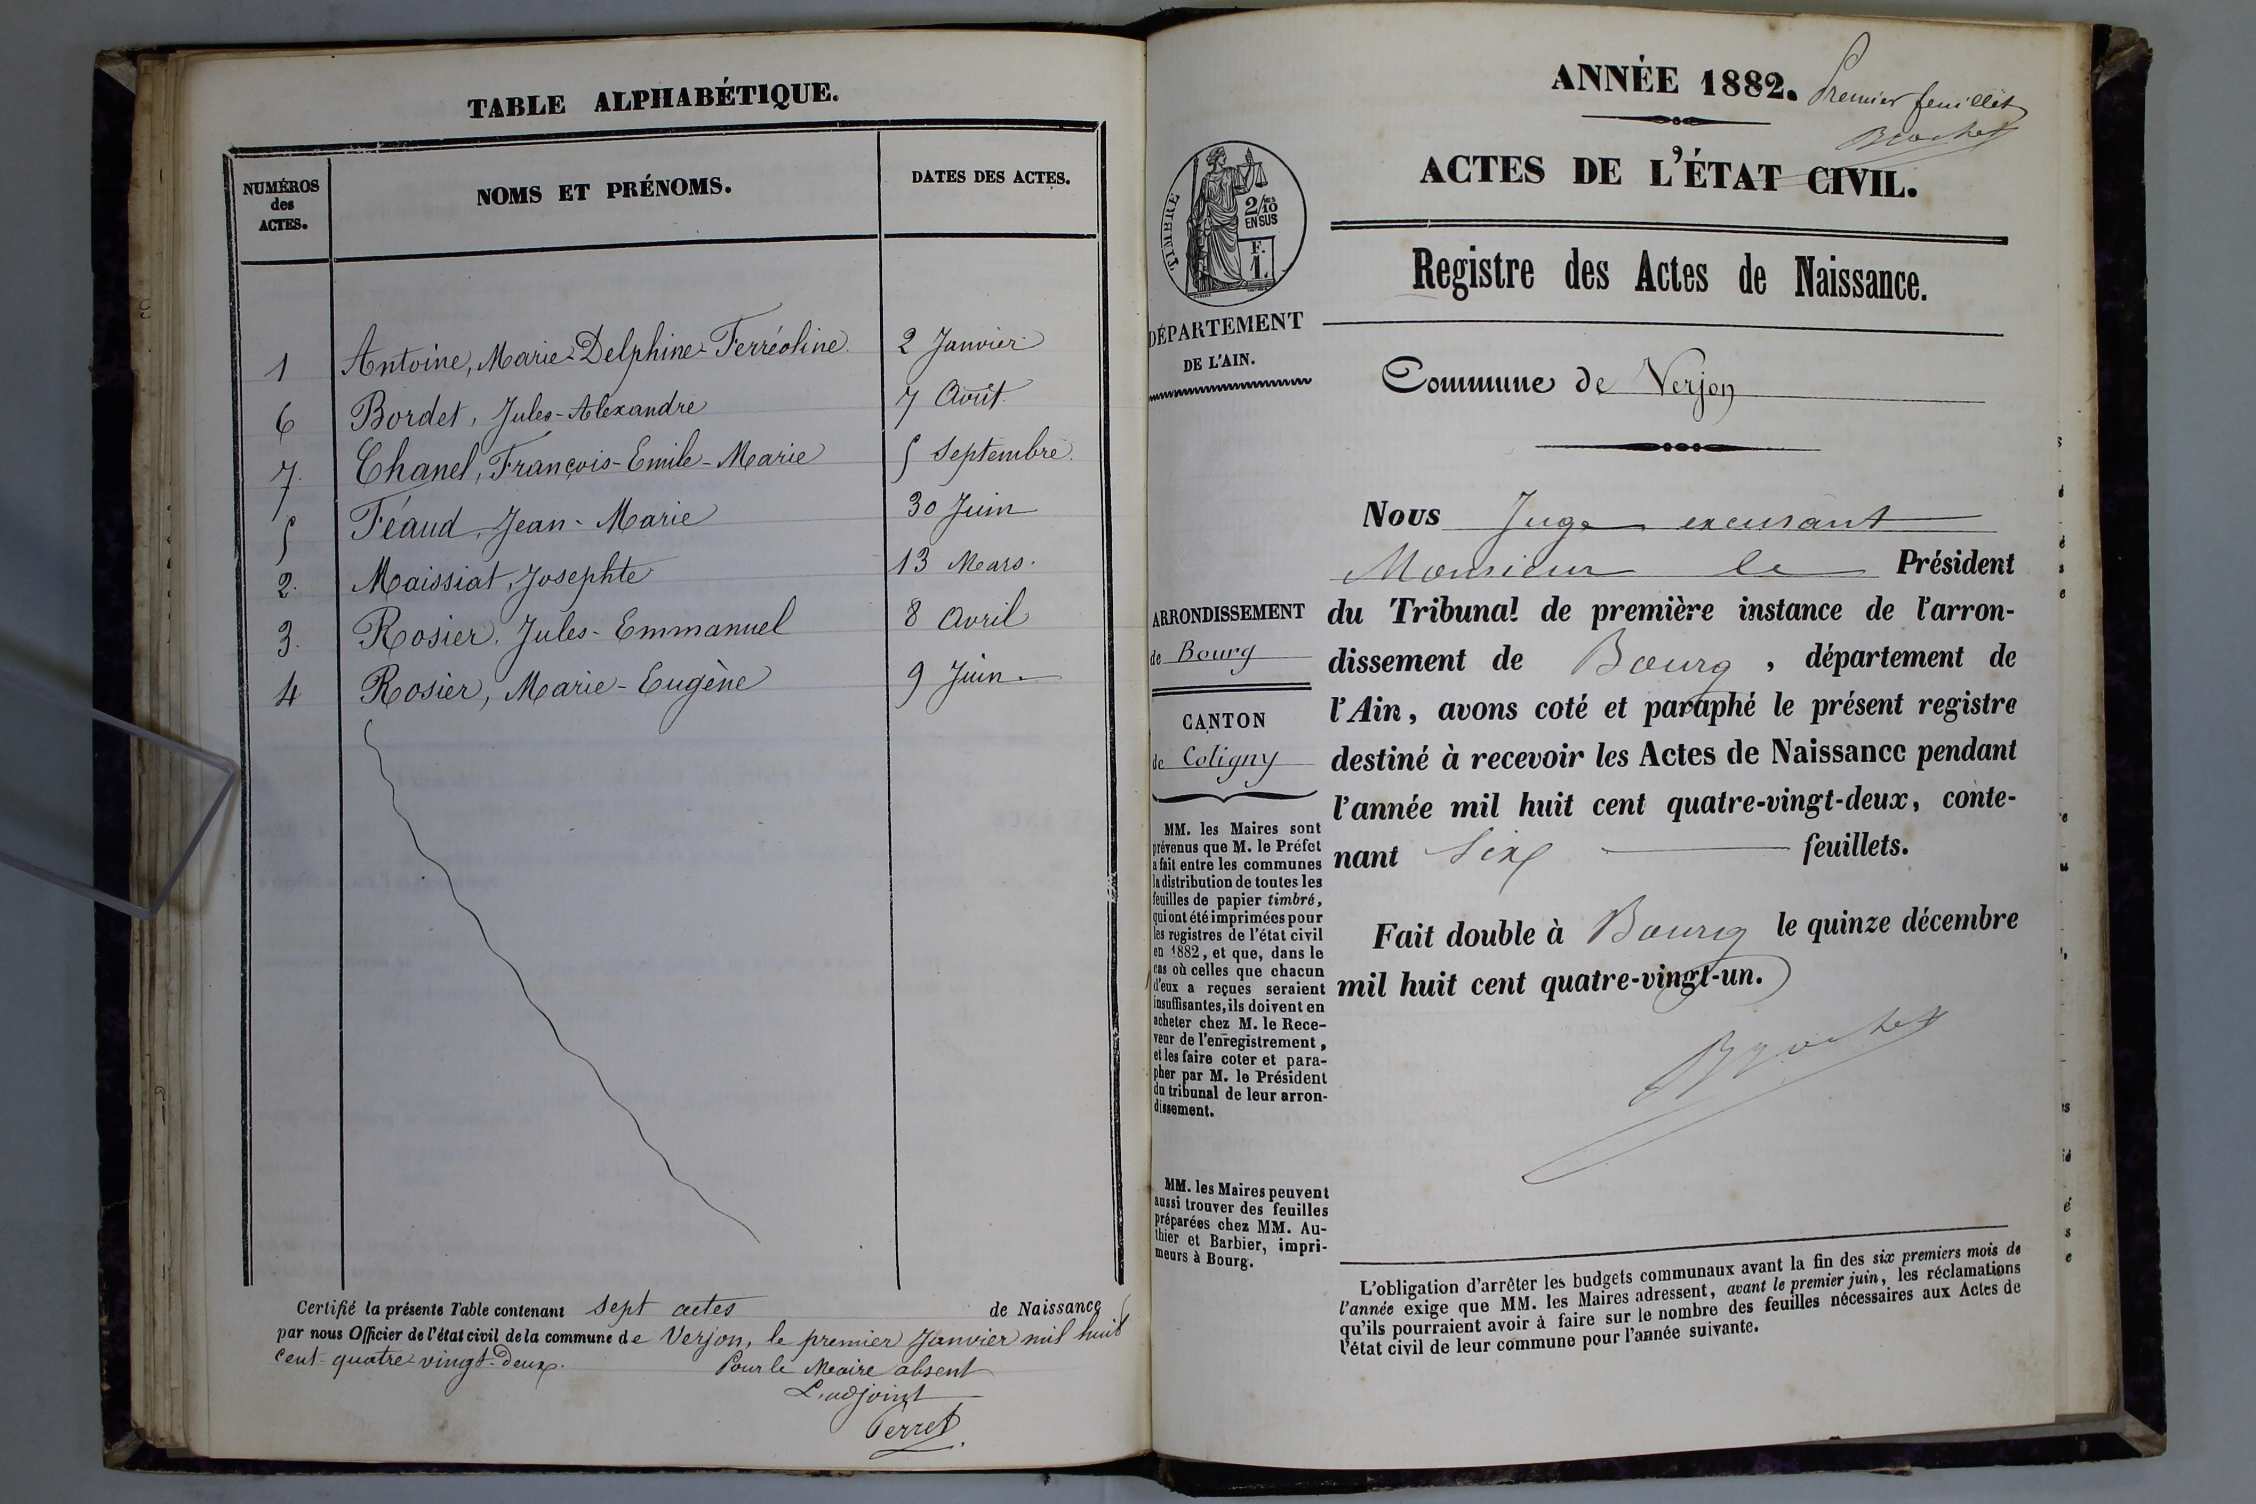 TABLE ALPHABÉTIQUE.
NUMÉROS
des
ACTES.
NOMS ET PRÉNOMS.
DATES DES ACTES.
1 Antoine, Marie-Delphine-Ferréoline 2 Janvier
6 Bordet, Jules-Alexandre 7 Août
7. Chanel, François-Emile-Marie 5 Septembre
5 Féaud, Jean-Marie 30 Juin
2. Maissiat, Josephte 13 Mars.
3. Rosier, Jules-Emmanuel 8 Avril
4 Rosier, Marie-Eugène 9 Juin
Certifié la présente Table contenant sept actes de Naissance
par nous Officier de l'état civil de la commune de Verjon, le premier Janvier mil huit
cent quatre-vingt-deux.
Pour le Maire absent
L'adjoint
Perret
ANNÉE 1882.
Premier feuillet
Brochet
ACTES DE L'ÉTAT CIVIL.
TIMBRE
2/10
EN SUS
F.
1.
Registre des Actes de Naissance.
DÉPARTEMENT
DE L'AIN.
Commune de Verjon
ARRONDISSEMENT
de Bourg
CANTON
de Coligny
MM. les Maires sont
prévenus que M. le Préfet
a fait entre les communes
la distribution de toutes les
feuilles de papier timbré,
qui ont été imprimées pour
les registres de l'état civil
en 1882, et que, dans le
cas où celles que chacun
d'eux a reçues seraient
insuffisantes, ils doivent en
acheter chez M. le Rece-
veur de l'enregistrement,
et les faire coter et para-
pher par M. le Président
du tribunal de leur arron-
dissement.
MM. les Maires peuvent
aussi trouver des feuilles
préparées chez MM. Au-
thier et Barbier, impri-
meurs à Bourg.
Nous Juge excusant
Monsieur le Président
du Tribunal de première instance de l'arron-
dissement de Bourg, département de
l'Ain, avons coté et paraphé le présent registre
destiné à recevoir les Actes de Naissance pendant
l'année mil huit cent quatre-vingt-deux, conte-
nant Six feuillets.
Fait double à Bourg le quinze décembre
mil huit cent quatre-vingt-un.
Brochet
L'obligation d'arrêter les budgets communaux avant la fin des six premiers mois de
l'année exige que MM. les Maires adressent, avant le premier juin, les réclamations
qu'ils pourraient avoir à faire sur le nombre des feuilles nécessaires aux Actes de
l'état civil de leur commune pour l'année suivante.